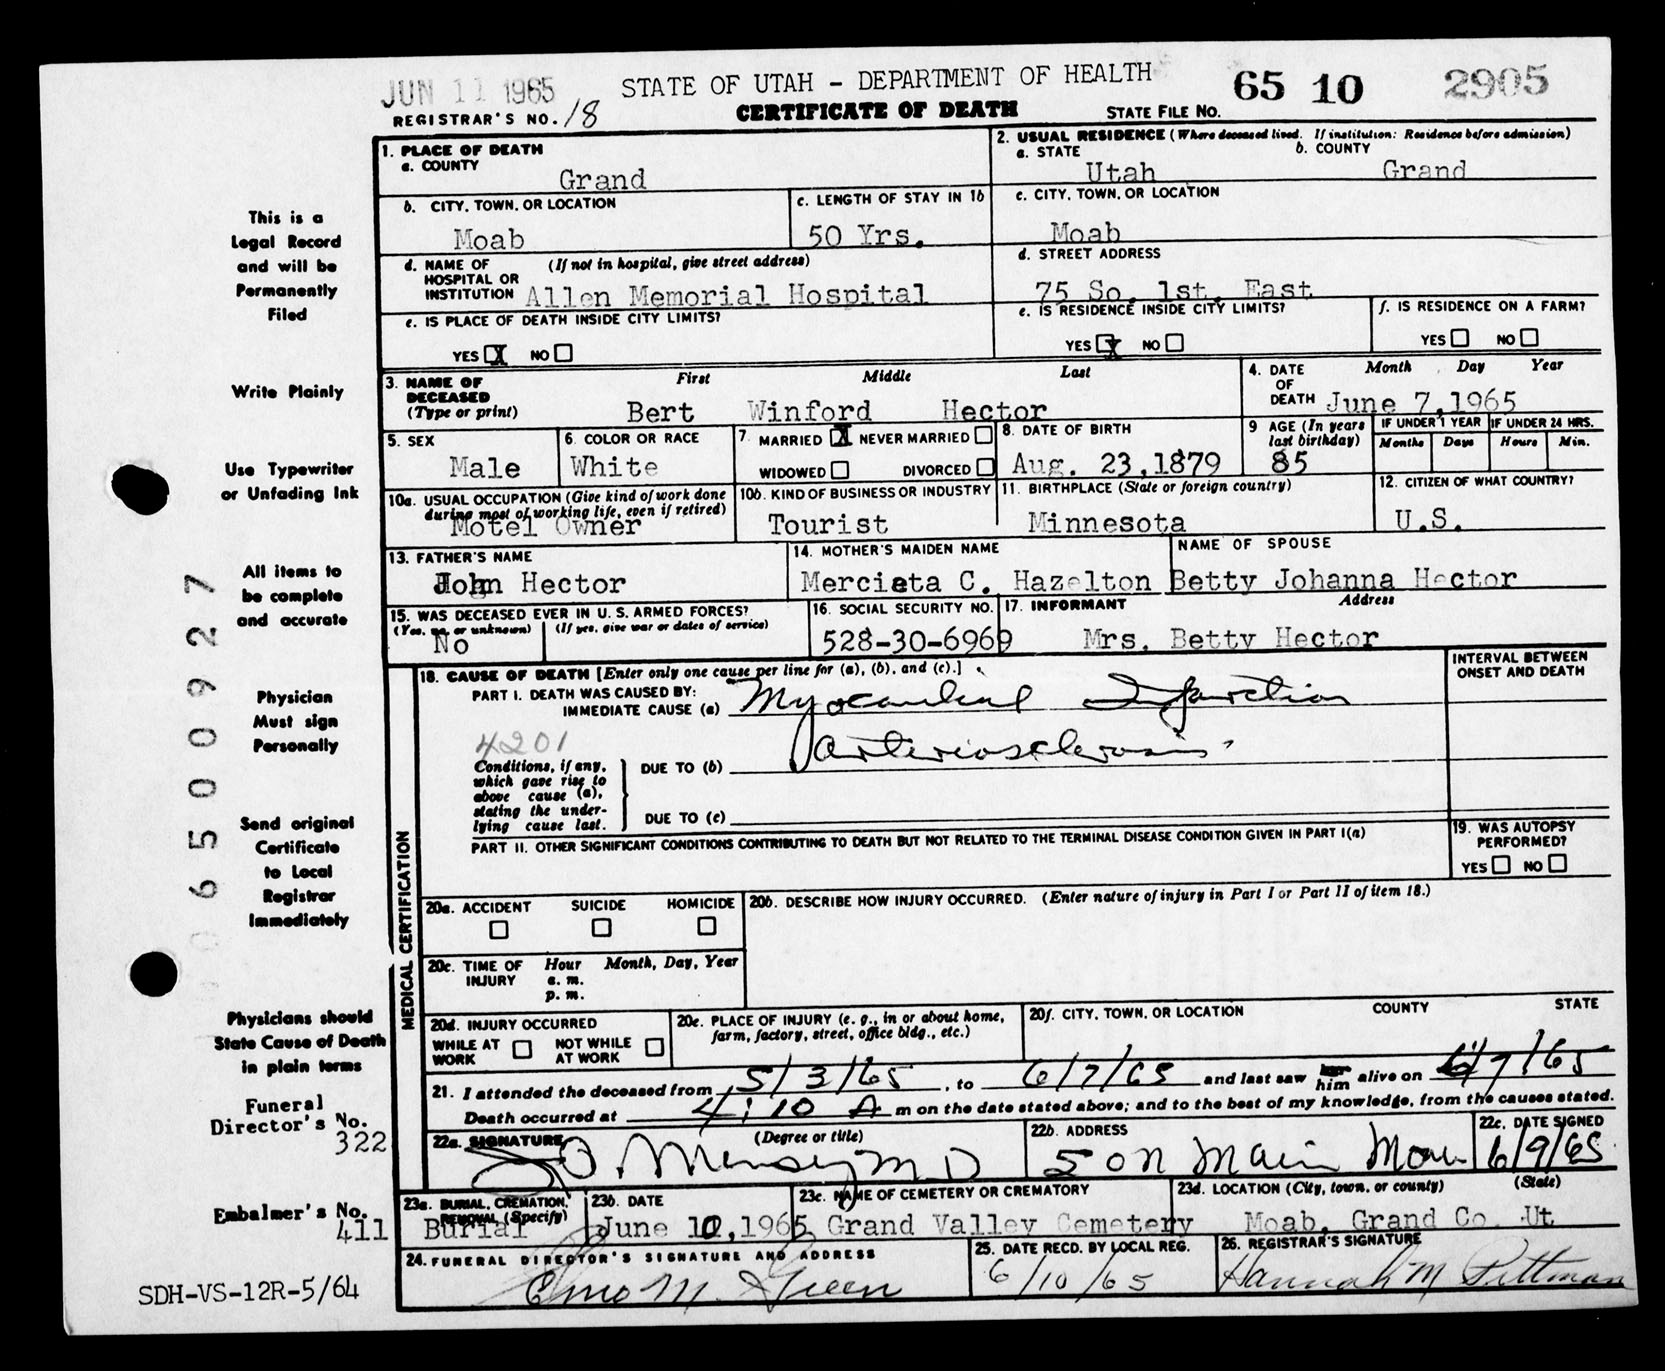 JUN 11 1965
STATE OF UTAH - DEPARTMENT OF HEALTH
65 10 2905
REGISTRAR'S NO. 18
CERTIFICATE OF DEATH
STATE FILE NO.
1. PLACE OF DEATH
a. COUNTY
Grand
2. USUAL RESIDENCE (Where deceased lived. If institution: Residence before admission)
a. STATE b. COUNTY
Utah Grand
b. CITY, TOWN, OR LOCATION
Moab
c. LENGTH OF STAY IN 1b
50 Yrs.
c. CITY, TOWN, OR LOCATION
Moab
d. NAME OF (If not in hospital, give street address)
HOSPITAL OR
INSTITUTION Allen Memorial Hospital
d. STREET ADDRESS
75 So. 1st. East
e. IS PLACE OF DEATH INSIDE CITY LIMITS?
YES X NO
e. IS RESIDENCE INSIDE CITY LIMITS?
YES X NO
f. IS RESIDENCE ON A FARM?
YES NO
3. NAME OF First Middle Last
DECEASED
(Type or print) Bert Winford Hector
4. DATE Month Day Year
OF
DEATH June 7, 1965
5. SEX
Male
6. COLOR OR RACE
White
7. MARRIED X NEVER MARRIED
WIDOWED DIVORCED
8. DATE OF BIRTH
Aug. 23, 1879
9 AGE (In years
last birthday)
85
IF UNDER 1 YEAR
Months Days
IF UNDER 24 HRS.
Hours Min.
10a. USUAL OCCUPATION (Give kind of work done
during most of working life, even if retired)
Motel Owner
10b. KIND OF BUSINESS OR INDUSTRY
Tourist
11. BIRTHPLACE (State or foreign country)
Minnesota
12. CITIZEN OF WHAT COUNTRY?
U.S.
13. FATHER'S NAME
John Hector
14. MOTHER'S MAIDEN NAME
Mercieta C. Hazelton
NAME OF SPOUSE
Betty Johanna Hector
15. WAS DECEASED EVER IN U. S. ARMED FORCES?
(Yes, no, or unknown) (If yes, give war or dates of service)
No
16. SOCIAL SECURITY NO.
528-30-6969
17. INFORMANT Address
Mrs. Betty Hector
18. CAUSE OF DEATH [Enter only one cause per line for (a), (b), and (c).]
PART I. DEATH WAS CAUSED BY:
IMMEDIATE CAUSE (a) Myocardial Infarction
4201
Conditions, if any,
which gave rise to
above cause (a),
stating the under-
lying cause last.
DUE TO (b) arteriosclerosis
DUE TO (c)
INTERVAL BETWEEN
ONSET AND DEATH
PART II. OTHER SIGNIFICANT CONDITIONS CONTRIBUTING TO DEATH BUT NOT RELATED TO THE TERMINAL DISEASE CONDITION GIVEN IN PART I(a)
19. WAS AUTOPSY
PERFORMED?
YES NO
MEDICAL CERTIFICATION
20a. ACCIDENT SUICIDE HOMICIDE
20b. DESCRIBE HOW INJURY OCCURRED. (Enter nature of injury in Part I or Part II of item 18.)
20c. TIME OF Hour Month, Day, Year
INJURY a. m.
p. m.
20d. INJURY OCCURRED
WHILE AT NOT WHILE
WORK AT WORK
20e. PLACE OF INJURY (e. g., in or about home,
farm, factory, street, office bldg., etc.)
20f. CITY, TOWN, OR LOCATION COUNTY STATE
21. I attended the deceased from 5/3/65, to 6/7/65 and last saw her him alive on 6/7/65
Death occurred at 4:10 A m on the date stated above; and to the best of my knowledge, from the causes stated.
22a. SIGNATURE (Degree or title)
M D
22b. ADDRESS
5 on Main Moab
22c. DATE SIGNED
6/9/65
23a. BURIAL, CREMATION,
REMOVAL (Specify)
Burial
23b. DATE
June 10, 1965
23c. NAME OF CEMETERY OR CREMATORY
Grand Valley Cemetery
23d. LOCATION (City, town, or county) (State)
Moab, Grand Co. Ut
24. FUNERAL DIRECTOR'S SIGNATURE AND ADDRESS
Elmo M. Green
25. DATE RECD. BY LOCAL REG.
6/10/65
26. REGISTRAR'S SIGNATURE
Hannah M Pittman
This is a
Legal Record
and will be
Permanently
Filed
Write Plainly
Use Typewriter
or Unfading Ink
All items to
be complete
and accurate
Physician
Must sign
Personally
Send original
Certificate
to Local
Registrar
Immediately
Physicians should
State Cause of Death
in plain terms
Funeral
Director's No.
322
Embalmer's No.
411
SDH-VS-12R-5/64
06500927